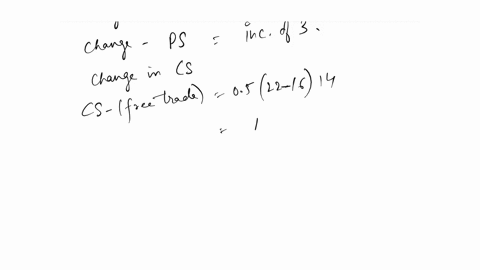 change - PS = inc. of 3.
change in CS
CS-(free trade) = 0.5 (22-16) 14
= 1